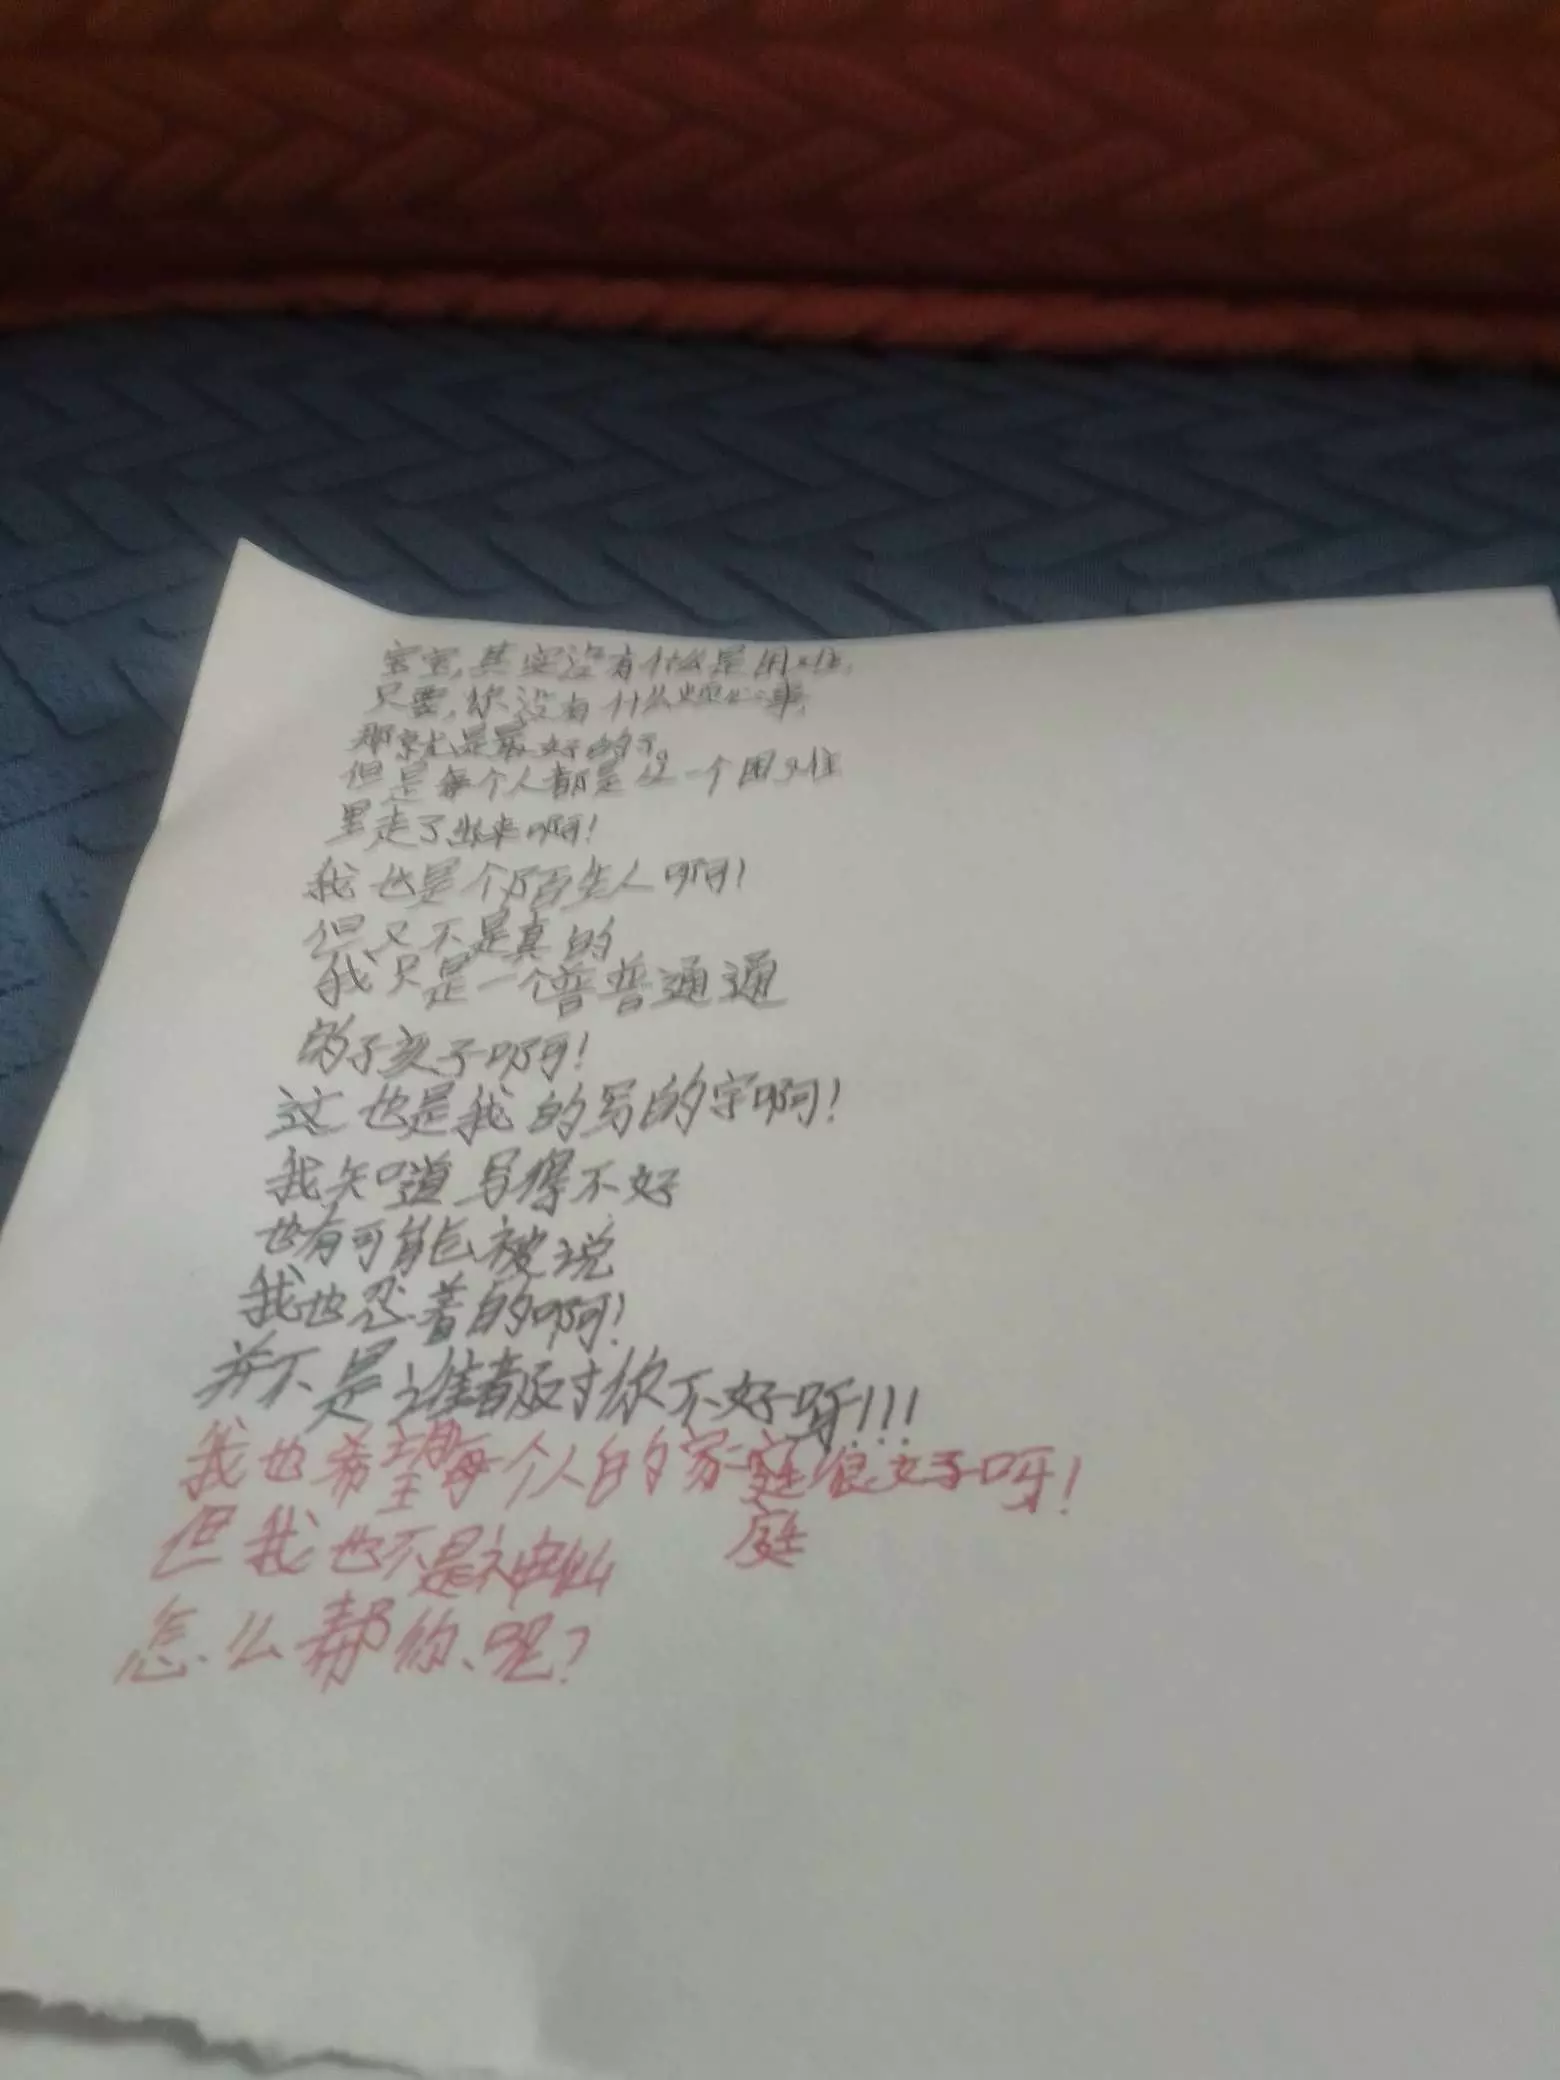 宝宝,其实没有什么是困难,
只要,你没有什么烦心事,
那就是最好的了。
但是每个人都是从一个困难
里走了出来啊!
我也是个陌生人啊!
但又不是真的
我只是一个普普通通
的子孩子啊!
这也是我的写的字啊!
我知道写得不好
也有可能被说
我也忍着的啊!
并不是谁都对你不好呀!!!
我也希望每个人的家庭很好呀!
庭
但我也不是神仙
怎么帮你呢?